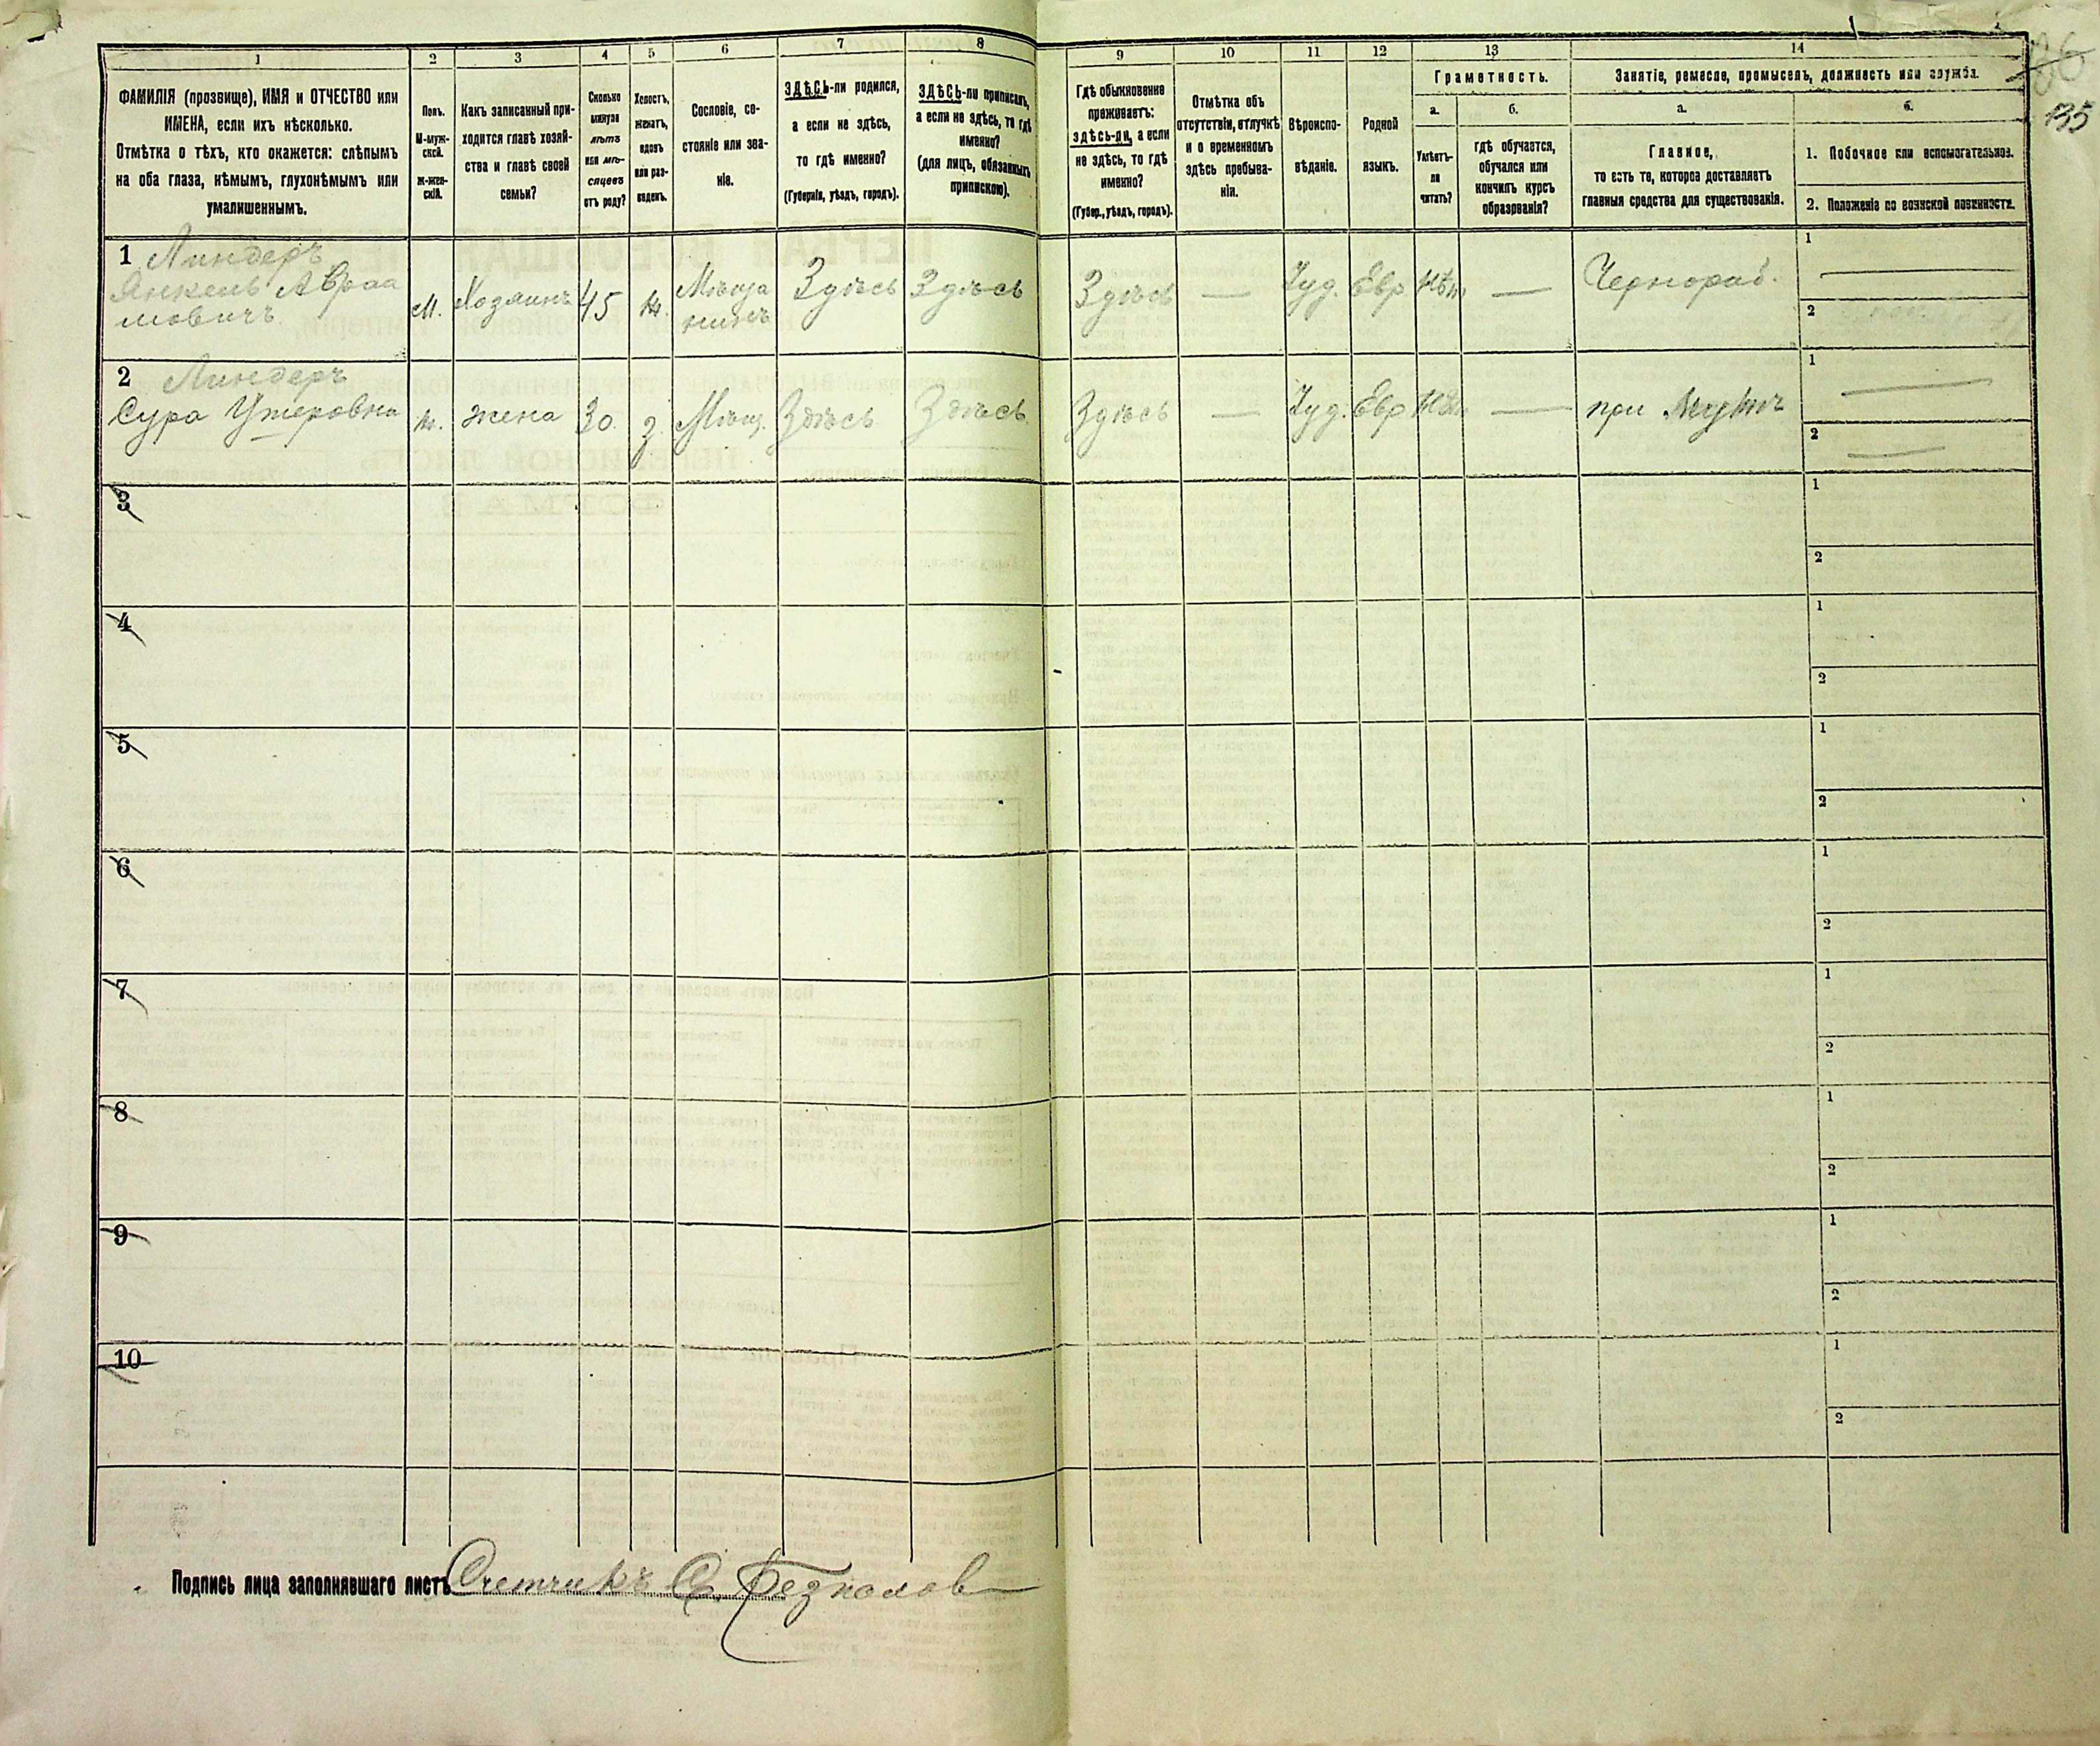 1 2 3 4 5 6 7 8 9 10 11 12 13 14
ФАМИЛІЯ (прозвище), ИМЯ и ОТЧЕСТВО или
ИМЕНА, если ихъ нѣсколько.
Отмѣтка о тѣхъ, кто окажется: слѣпымъ
на оба глаза, нѣмымъ, глухонѣмымъ или
умалишеннымъ.
Полъ.
М-муж-
ской.
ж-жен-
скій.
Какъ записанный при-
ходится главѣ хозяй-
ства и главѣ своей
семьи?
Сколько
минуло
лѣтъ
или мѣ-
сяцевъ
отъ роду?
Холостъ,
женатъ,
вдовъ
или раз-
веденъ.
Сословіе, со-
стояніе или зва-
ніе.
ЗДѢСЬ-ли родился,
а если не здѣсь,
то гдѣ именно?
(Губернія, уѣздъ, городъ).
ЗДѢСЬ-ли приписанъ,
а если не здѣсь, то гдѣ
именно?
(для лицъ, обязанныхъ
припискою).
Гдѣ обыкновенно
проживаетъ:
здѣсь-ли, а если
не здѣсь, то гдѣ
именно?
(Губер., уѣздъ, городъ).
Отмѣтка объ
отсутствіи, отлучкѣ
и о временномъ
здѣсь пребыва-
ніи.
Вѣроиспо-
вѣданіе.
Родной
языкъ.
Грамотность.
а.
Умѣетъ-
ли
читать?
б.
гдѣ обучается,
обучался или
кончилъ курсъ
образованія?
Занятіе, ремесло, промыселъ, должность или служба.
а.
Главное,
то есть то, которое доставляетъ
главныя средства для существованія.
б.
1. Побочное или вспомогательное.
2. Положеніе по воинской повинности.
135
1 Линдеръ
Янкель Авраа
мовичъ М. Хозяинъ 45 ж. Мѣща
нинъ Здѣсь Здѣсь Здѣсь — Іуд. Евр Нѣтъ — Чернораб.
1
2
2 Линдеръ
Сура ж. жена 30 з. Мѣщ. Здѣсь Здѣсь Здѣсь — Іуд. Евр Нѣтъ — при мужѣ
1
2
3
1
2
4
1
2
5
1
2
6
1
2
7
1
2
8
1
2
9
1
2
10
1
2
Подпись лица заполнявшаго листъ Счетчикъ